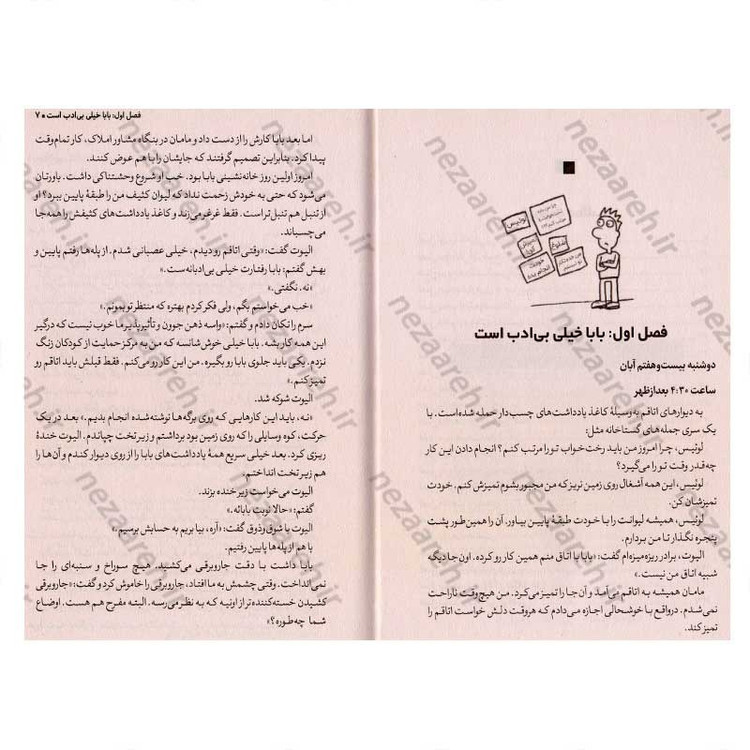 لوئیس
فصل اول: بابا خیلی بی‌ادب است
دوشنبه بیست‌و‌هفتم آبان
ساعت ۴:۳۰ بعدازظهر
به دیوارهای اتاقم به‌وسیلهٔ کاغذ یادداشت‌های چسب‌دار حمله شده است. با
یک سری جمله‌های گستاخانه مثل:
لوئیس، چرا امروز من باید رخت‌خواب تو را مرتب کنم؟ انجام دادن این کار
چه‌قدر وقت تو را می‌گیرد؟
لوئیس، این همه آشغال روی زمین نریز که من مجبور بشوم تمیزش کنم. خودت
تمیزشان کن.
لوئیس، همیشه لیوانت را با خودت طبقهٔ پایین بیاور. آن را همین طور پشت
پنجره نگذار تا من بردارم.
الیوت، برادر ریزه‌میزه‌ام گفت: «بابا با اتاق منم همین کار رو کرده. اون‌جا دیگه
شبیه اتاق من نیست.»
مامان همیشه به اتاقم می‌آمد و آن‌جا را تمیز می‌کرد. من هیچ‌وقت ناراحت
نمی‌شدم. درواقع با خوشحالی اجازه می‌دادم که هروقت دلش خواست اتاقم را
تمیز کند.
فصل اول: بابا خیلی بی‌ادب است ■ ۷
اما بعد بابا کارش را از دست داد و مامان در بنگاه مشاور املاک، کار تمام‌وقت
پیدا کرد. بنابراین تصمیم گرفتند که جایشان را با هم عوض کنند.
امروز اولین روز خانه‌نشینی بابا بود. خب او شروع وحشتناکی داشت. باورتان
می‌شود که حتی به خودش زحمت نداد که لیوان کثیف من را طبقهٔ پایین ببرد؟ او
از تنبل هم تنبل‌تر است. فقط غرغر می‌زند و کاغذ یادداشت‌های کثیفش را همه‌جا
می‌چسباند.
الیوت گفت: «وقتی اتاقم رو دیدم، خیلی عصبانی شدم. از پله‌ها رفتم پایین و
بهش گفتم: بابا رفتارت خیلی بی‌ادبانه‌ست.»
«نه. نگفتی.»
«خب می‌خواستم بگم، ولی فکر کردم بهتره که منتظر تو بمونم.»
سرم را تکان دادم و گفتم: «واسه ذهن جوون و تأثیرپذیر ما خوب نیست که درگیر
این همه کار بشه. بابا خیلی خوش‌شانسه که من به مرکز حمایت از کودکان زنگ
نزدم. یکی باید جلوی بابا رو بگیره. من این کار رو می‌کنم. فقط قبلش باید اتاقم رو
تمیز کنم.»
الیوت شوکه شد.
«نه، باید این کارهایی که روی برگه‌ها نوشته‌شده انجام بدیم.» بعد در یک
حرکت، کوه وسایلی را که روی زمین بود برداشتم و زیر تخت چپاندم. الیوت خندهٔ
ریزی کرد. بعد خیلی سریع همهٔ یادداشت‌های بابا را از روی دیوار کندم و آن‌ها را
هم زیر تخت انداختم.
الیوت می‌خواست زیر خنده بزند.
گفتم: «حالا نوبت بابائه.»
الیوت با شوق و ذوق گفت: «آره، بیا بریم به حسابش برسیم.»
با هم از پله‌ها پایین رفتیم.
بابا داشت با دقت جاروبرقی می‌کشید. هیچ سوراخ و سنبه‌ای را جا
نمی‌انداخت. وقتی چشمش به ما افتاد، جاروبرقی را خاموش کرد و گفت: «جاروبرقی
کشیدن خسته‌کننده‌تر از اونیه که به نظر می‌رسه. البته مفرح هم هست. اوضاع
شما چه‌طوره؟»
nezaareh.ir